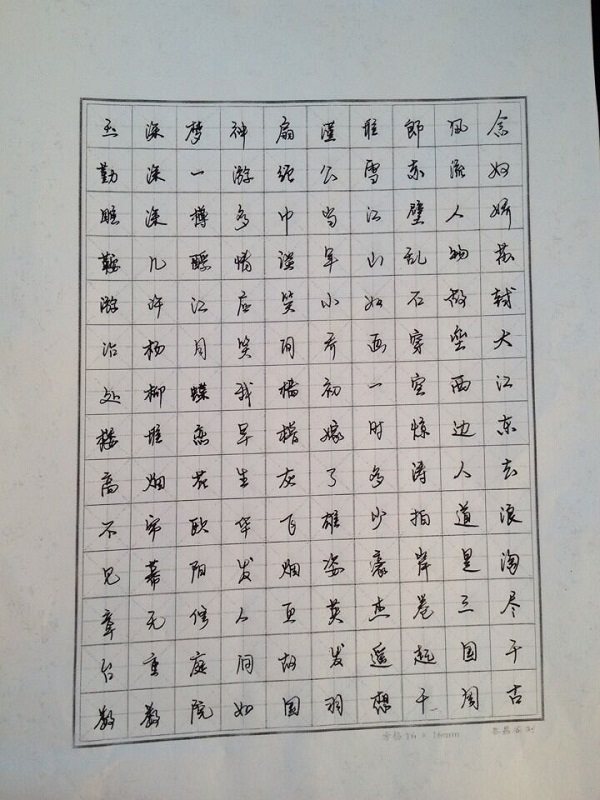 念奴娇苏轼大江东去浪淘尽千古
风流人物故垒西边人道是三国周
郎赤壁乱石穿空惊涛拍岸卷起千
堆雪江山如画一时多少豪杰遥想
瑾公当年小乔初嫁了雄姿英发羽
扇纶巾谈笑间樯橹灰飞烟灭故国
神游多情应笑我早生华发人间如
梦一樽酹江月蝶恋花欧阳修庭院
深深深几许杨柳堆烟帘幕无重数
玉勒雕鞍游冶处楼高不见章台数